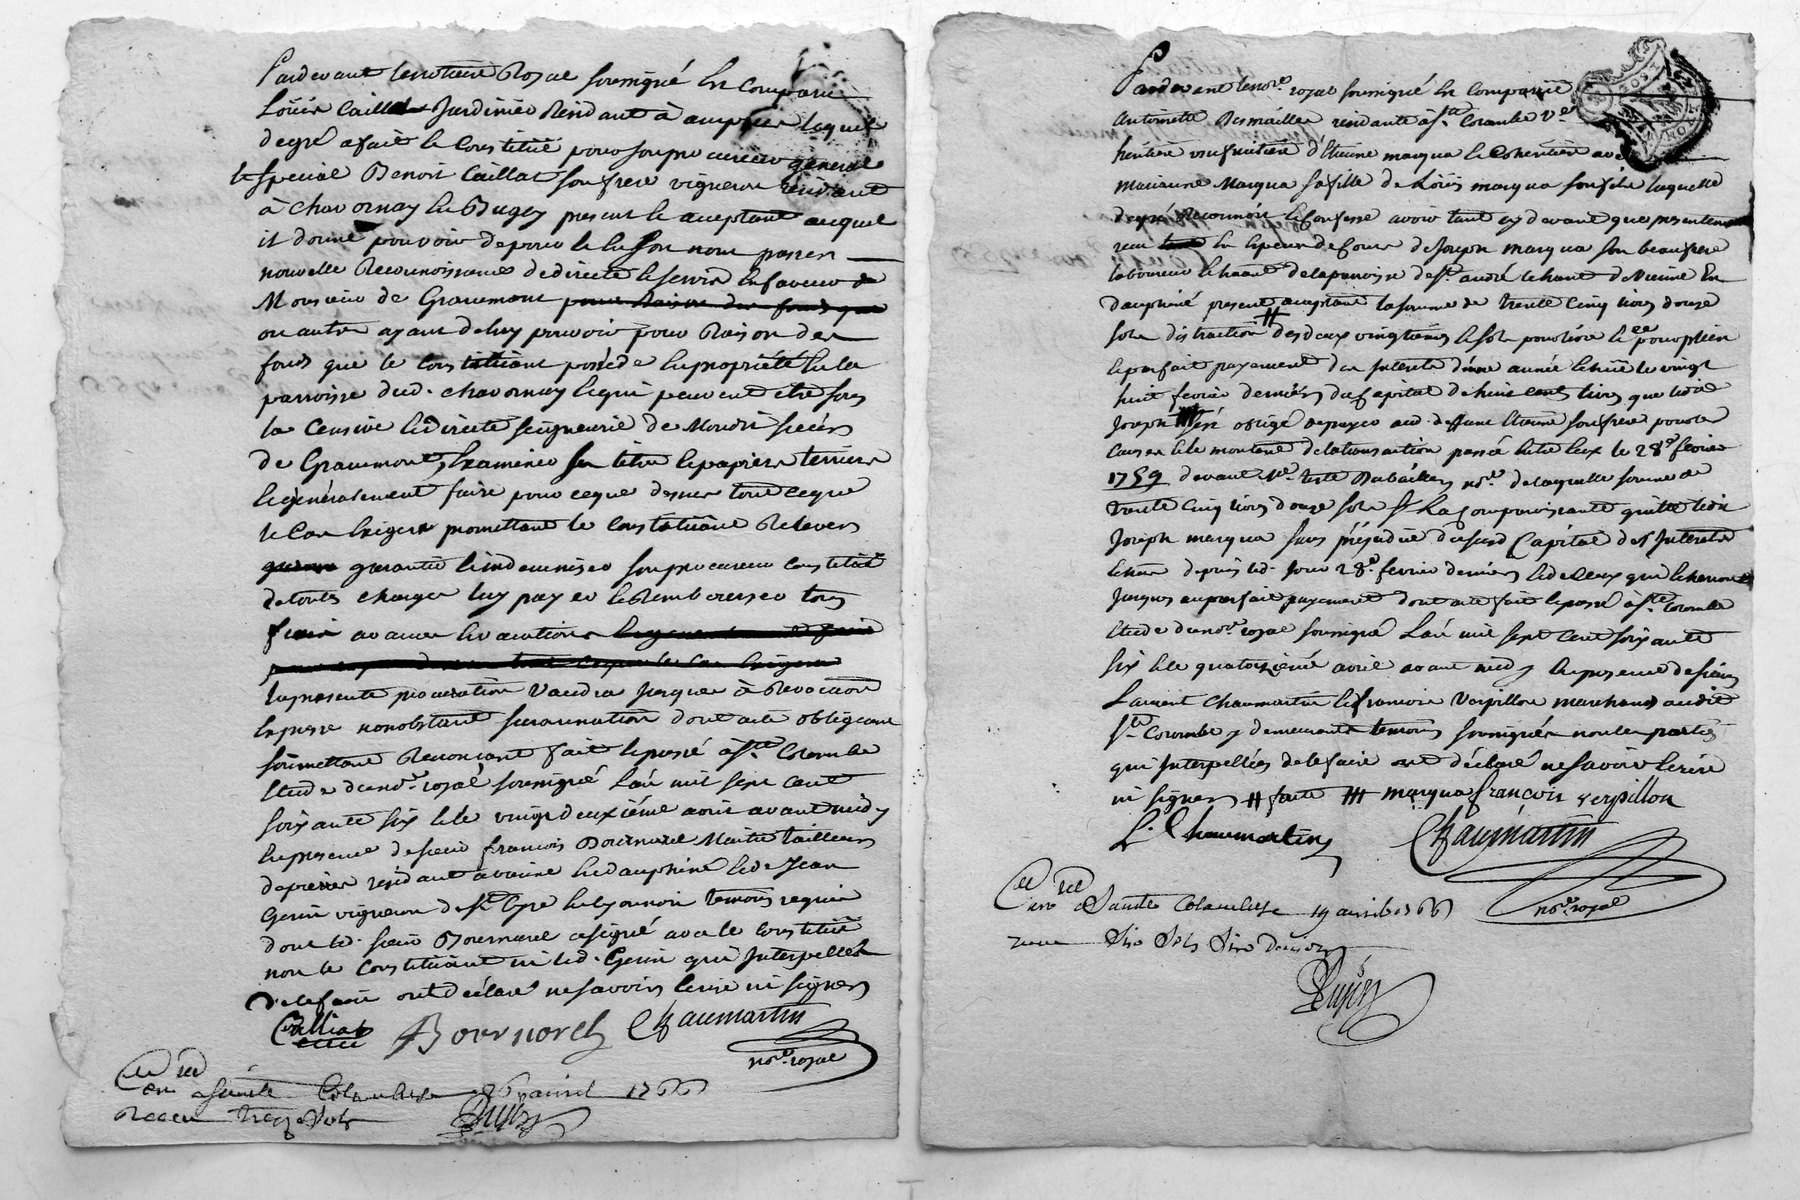 Pardevant le notaire Royal soussigné Est Comparu
Louis Caillat Jardinier Residant à ampuis lequel
de gré a fait et Constitué pour son procureur général
et special Benoit Caillat son frere vigneron residant
à Chavornay En Bugey present et acceptant auquel
il donne pouvoir de pour et En son nom passer
nouvelle Reconnoissance de directe et servis En faveur de
Monsieur de Gramont pour Raison des fonds que
ou autre ayant de luy pouvoir pour Raison des
fonds que le Constituant posséde En propriété En la
parroisse dud. Chavornay et qui peuvent etre sous
la Censive et directe seigneurie de Mondit sieur
de Gramont, Examiner les titres et papiers terriers
et généralement faire pour ce que dessus tout ce que
le Cas Exigera promettant le Constituant Relever
garantir et indemniser son procureur Constitué
de toutes charges luy payer et Rembourser tous
frais avances et vacations et generalement faire
pour ce que dessus tout ce que le Cas Exigera
la presente procuration vaudra jusques à Revocation
Expresse nonobstant surannation dont acte obligeant
soumettant Renonçant fait et passé à Ste Colombe
Etude du nore. royal soussigné L'an mil sept cent
soixante six et le vingt deuxième avril avant midy
En presence de sieur francois Bournorel Maitre tailleur
d'habits résidant à vienne En dauphiné et de Jean
Gerin vigneron de St Cyre En Lyonnois temoins requis
dont led. sieur Bournorel a signé avec le Constitué
non le Constituant ni led. Gerin qui Interpellés
de le faire ont déclaré ne savoir Ecrire ni signer
Calliat Bournorel Chaumartin
nore. royal
Controllé à Sainte Colombe 26 avril 1766
Receu treize sols
Pardevant le nore. royal soussigné Est Comparüe
antoinette Desmailles residante à Ste. Colombe Ve. et
héritiere usufruitiere d'Etienne marqua et Coheritiere avec
Marianne Marqua sa fille de Loüis marqua son fils laquelle
de gré Reconnoit et Confesse avoir tant cy devant que presentement
receu En Especes de Cours de Joseph marqua son beaufrere
laboureur habitant de la parroisse de St. andré le haut de Vienne En
dauphiné present acceptant la somme de trente Cinq livres douze
sols distraction # des deux vingtiemes et sols pour livre et ce pour plein
et parfait payement des Interets d'une année Echüe le vingt
huit fevrier dernier du Capital de huit cents livres que ledit
Joseph #### s'est obligé de payer aud. deffunt Etienne son frere pour les
Causes et le montant de la transaction passée Entre Eux le 28e. fevrier
1759 devant Me. teste Dubailler nore. de laquelle somme de
trente Cinq livres douze sols La Comparoissante quitte ledit
Joseph marqua sans préjudice du susd. Capital des Interets
Echus depuis led. Jour 28e. fevrier dernier et de Ceux qui Echerront
Jusques au parfait payement dont acte fait et passé à Ste. Colombe
Etude du nore. royal soussigné L'an mil sept cent soixante
six et le quatorzieme avril avant midy En presence de sieurs
Laurent Chaumartin et francois Verpillon marchands audit
Ste. Colombe y demeurants temoins soussignés non les parties
qui Interpellées de le faire ont déclaré ne savoir Ecrire
ni signer # faite #### marqua françois verpillon
L. Chaumartin Chaumartin
nore. royal
Controllé à Sainte Colombe 19 avril 1766
receu Six Sols Six Deniers